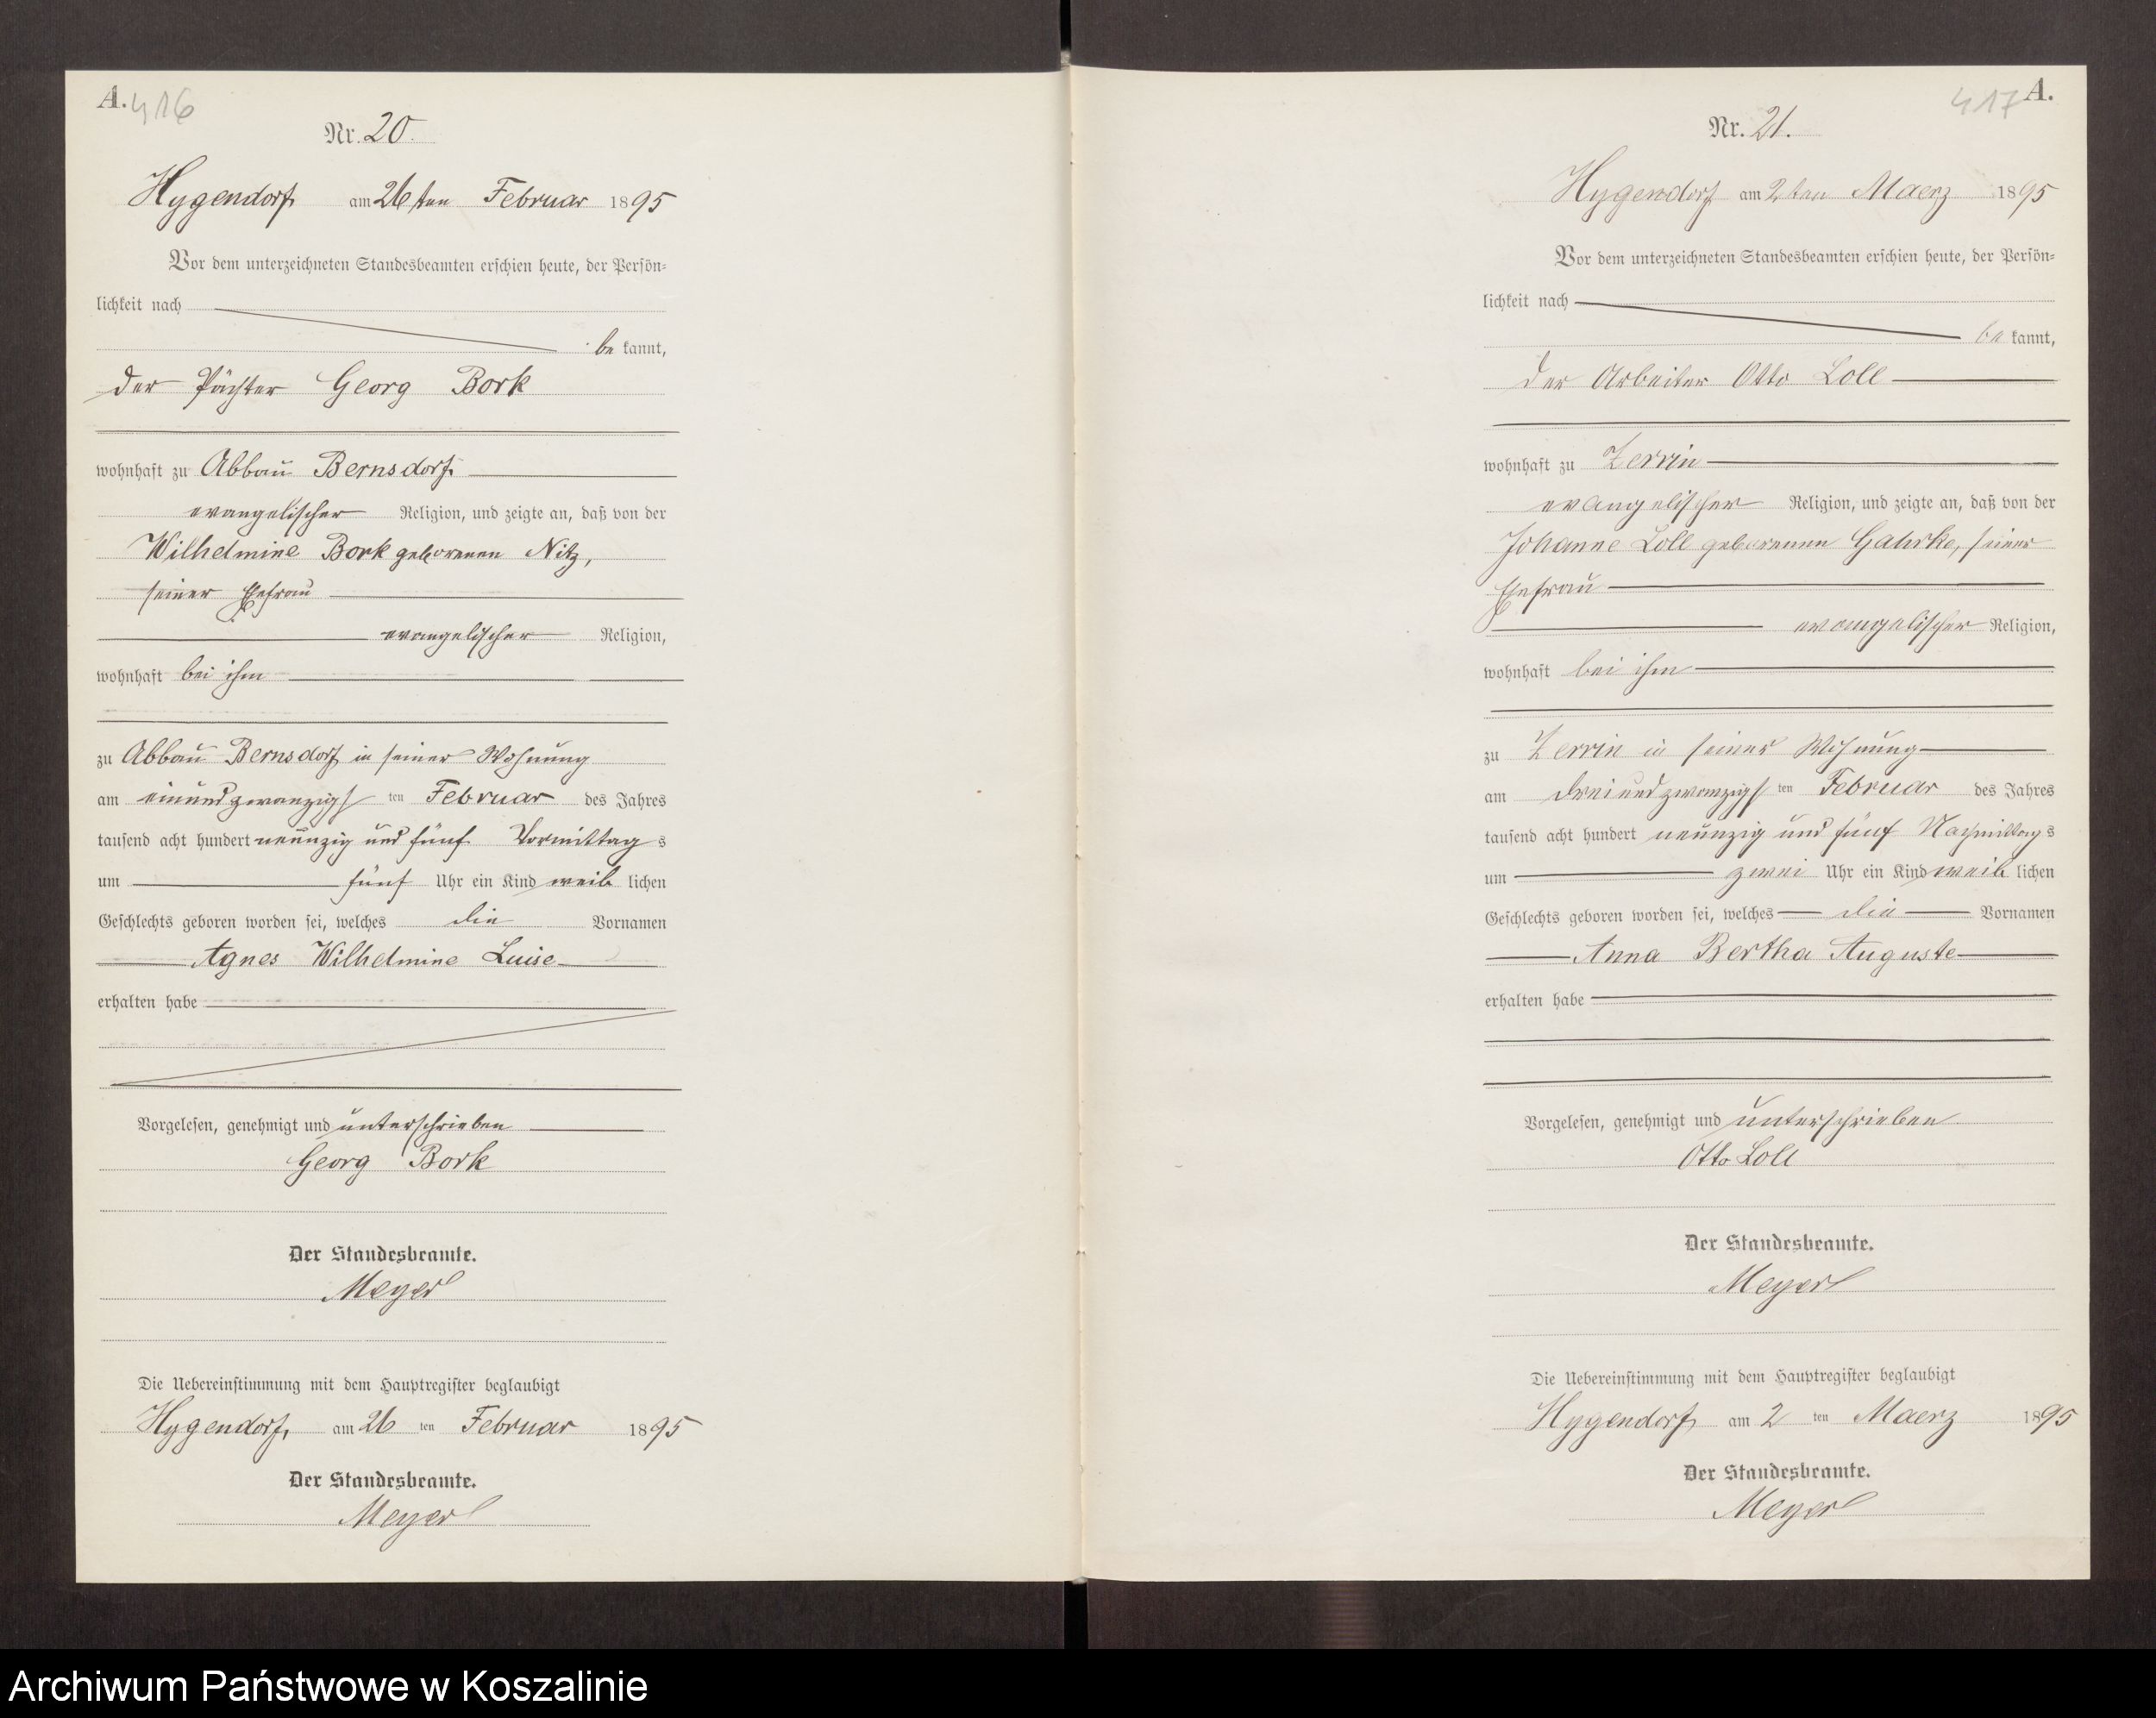 A. 416
Nr. 20.
Hygendorf am 26ten Februar 1895
Vor dem unterzeichneten Standesbeamten erschien heute, der Persön-
lichkeit nach
be kannt,
der Pächter Georg Bork
wohnhaft zu Abbau Bernsdorf
evangelischer Religion, und zeigte an, daß von der
Wilhelmine Bork geborenen Nitz,
seiner Ehefrau
evangelischer Religion,
wohnhaft bei ihm
zu Abbau Bernsdorf in seiner Wohnung
am einundzwanzigsten Februar des Jahres
tausend acht hundert neunzig und fünf Vormittags
um fünf Uhr ein Kind weiblichen
Geschlechts geboren worden sei, welches die Vornamen
Agnes Wilhelmine Luise
erhalten habe
Vorgelesen, genehmigt und unterschrieben
Georg Bork
Der Standesbeamte.
Meyer
Die Uebereinstimmung mit dem Hauptregister beglaubigt
Hygendorf, am 26 ten Februar 1895
Der Standesbeamte.
Meyer
417 A.
Nr. 21.
Hygendorf am 2ten Maerz 1895
Vor dem unterzeichneten Standesbeamten erschien heute, der Persön-
lichkeit nach
be kannt,
der Arbeiter Otto Loll
wohnhaft zu Zerrin
evangelischer Religion, und zeigte an, daß von der
Johanne Loll geborenen Gahrke, seiner
Ehefrau
evangelischer Religion,
wohnhaft bei ihm
zu Zerrin in seiner Wohnung
am dreiundzwanzigsten Februar des Jahres
tausend acht hundert neunzig und fünf Nachmittags
um zwei Uhr ein Kind weiblichen
Geschlechts geboren worden sei, welches die Vornamen
Anna Bertha Auguste
erhalten habe
Vorgelesen, genehmigt und unterschrieben
Otto Loll
Der Standesbeamte.
Meyer
Die Uebereinstimmung mit dem Hauptregister beglaubigt
Hygendorf, am 2 ten Maerz 1895
Der Standesbeamte.
Meyer
Archiwum Państwowe w Koszalinie